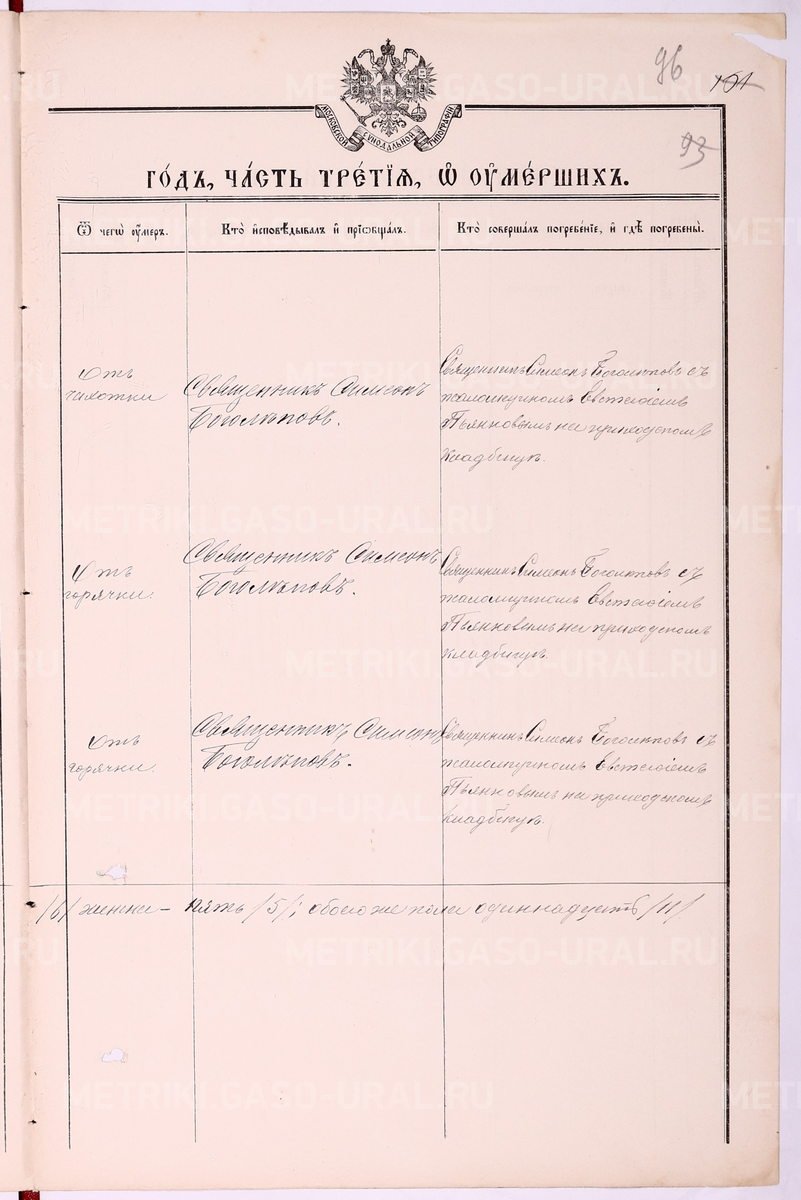 96
101
93
МОСКОВСКОЙ СѴНОДАЛЬНОЙ ТИПОГРАФІИ
ГО́ДЪ, ЧА́СТЬ ТРЕ́ТІѦ, Ѡ҆ ОУ҆МЕ́РШИХЪ.
Ѿ чегѡ̀ оу҆́меръ.
Кто̀ и҆сповѣ́дывалъ и҆ прїѡбща́лъ.
Кто̀ соверша́лъ погребе́нїе, и҆ гдѣ̀ погребены̀.
Отъ
чахотки
Священникъ Симеонъ
Боголѣповъ.
Священникъ Симеонъ Боголѣповъ съ
псаломщикомъ Евстаѳіемъ
Пьянковымъ на приходскомъ
кладбищѣ.
Отъ
горячки.
Священникъ Симеонъ
Боголѣповъ.
Священникъ Симеонъ Боголѣповъ съ
псаломщикомъ Евстаѳіемъ
Пьянковымъ на приходскомъ
кладбищѣ.
Отъ
горячки.
Священникъ Симеонъ
Боголѣповъ.
Священникъ Симеонъ Боголѣповъ съ
псаломщикомъ Евстаѳіемъ
Пьянковымъ на приходскомъ
кладбищѣ.
/6/ женска – пять /5/; обоего же пола одиннадцать /11/
METRIKI.GASO-URAL.RU